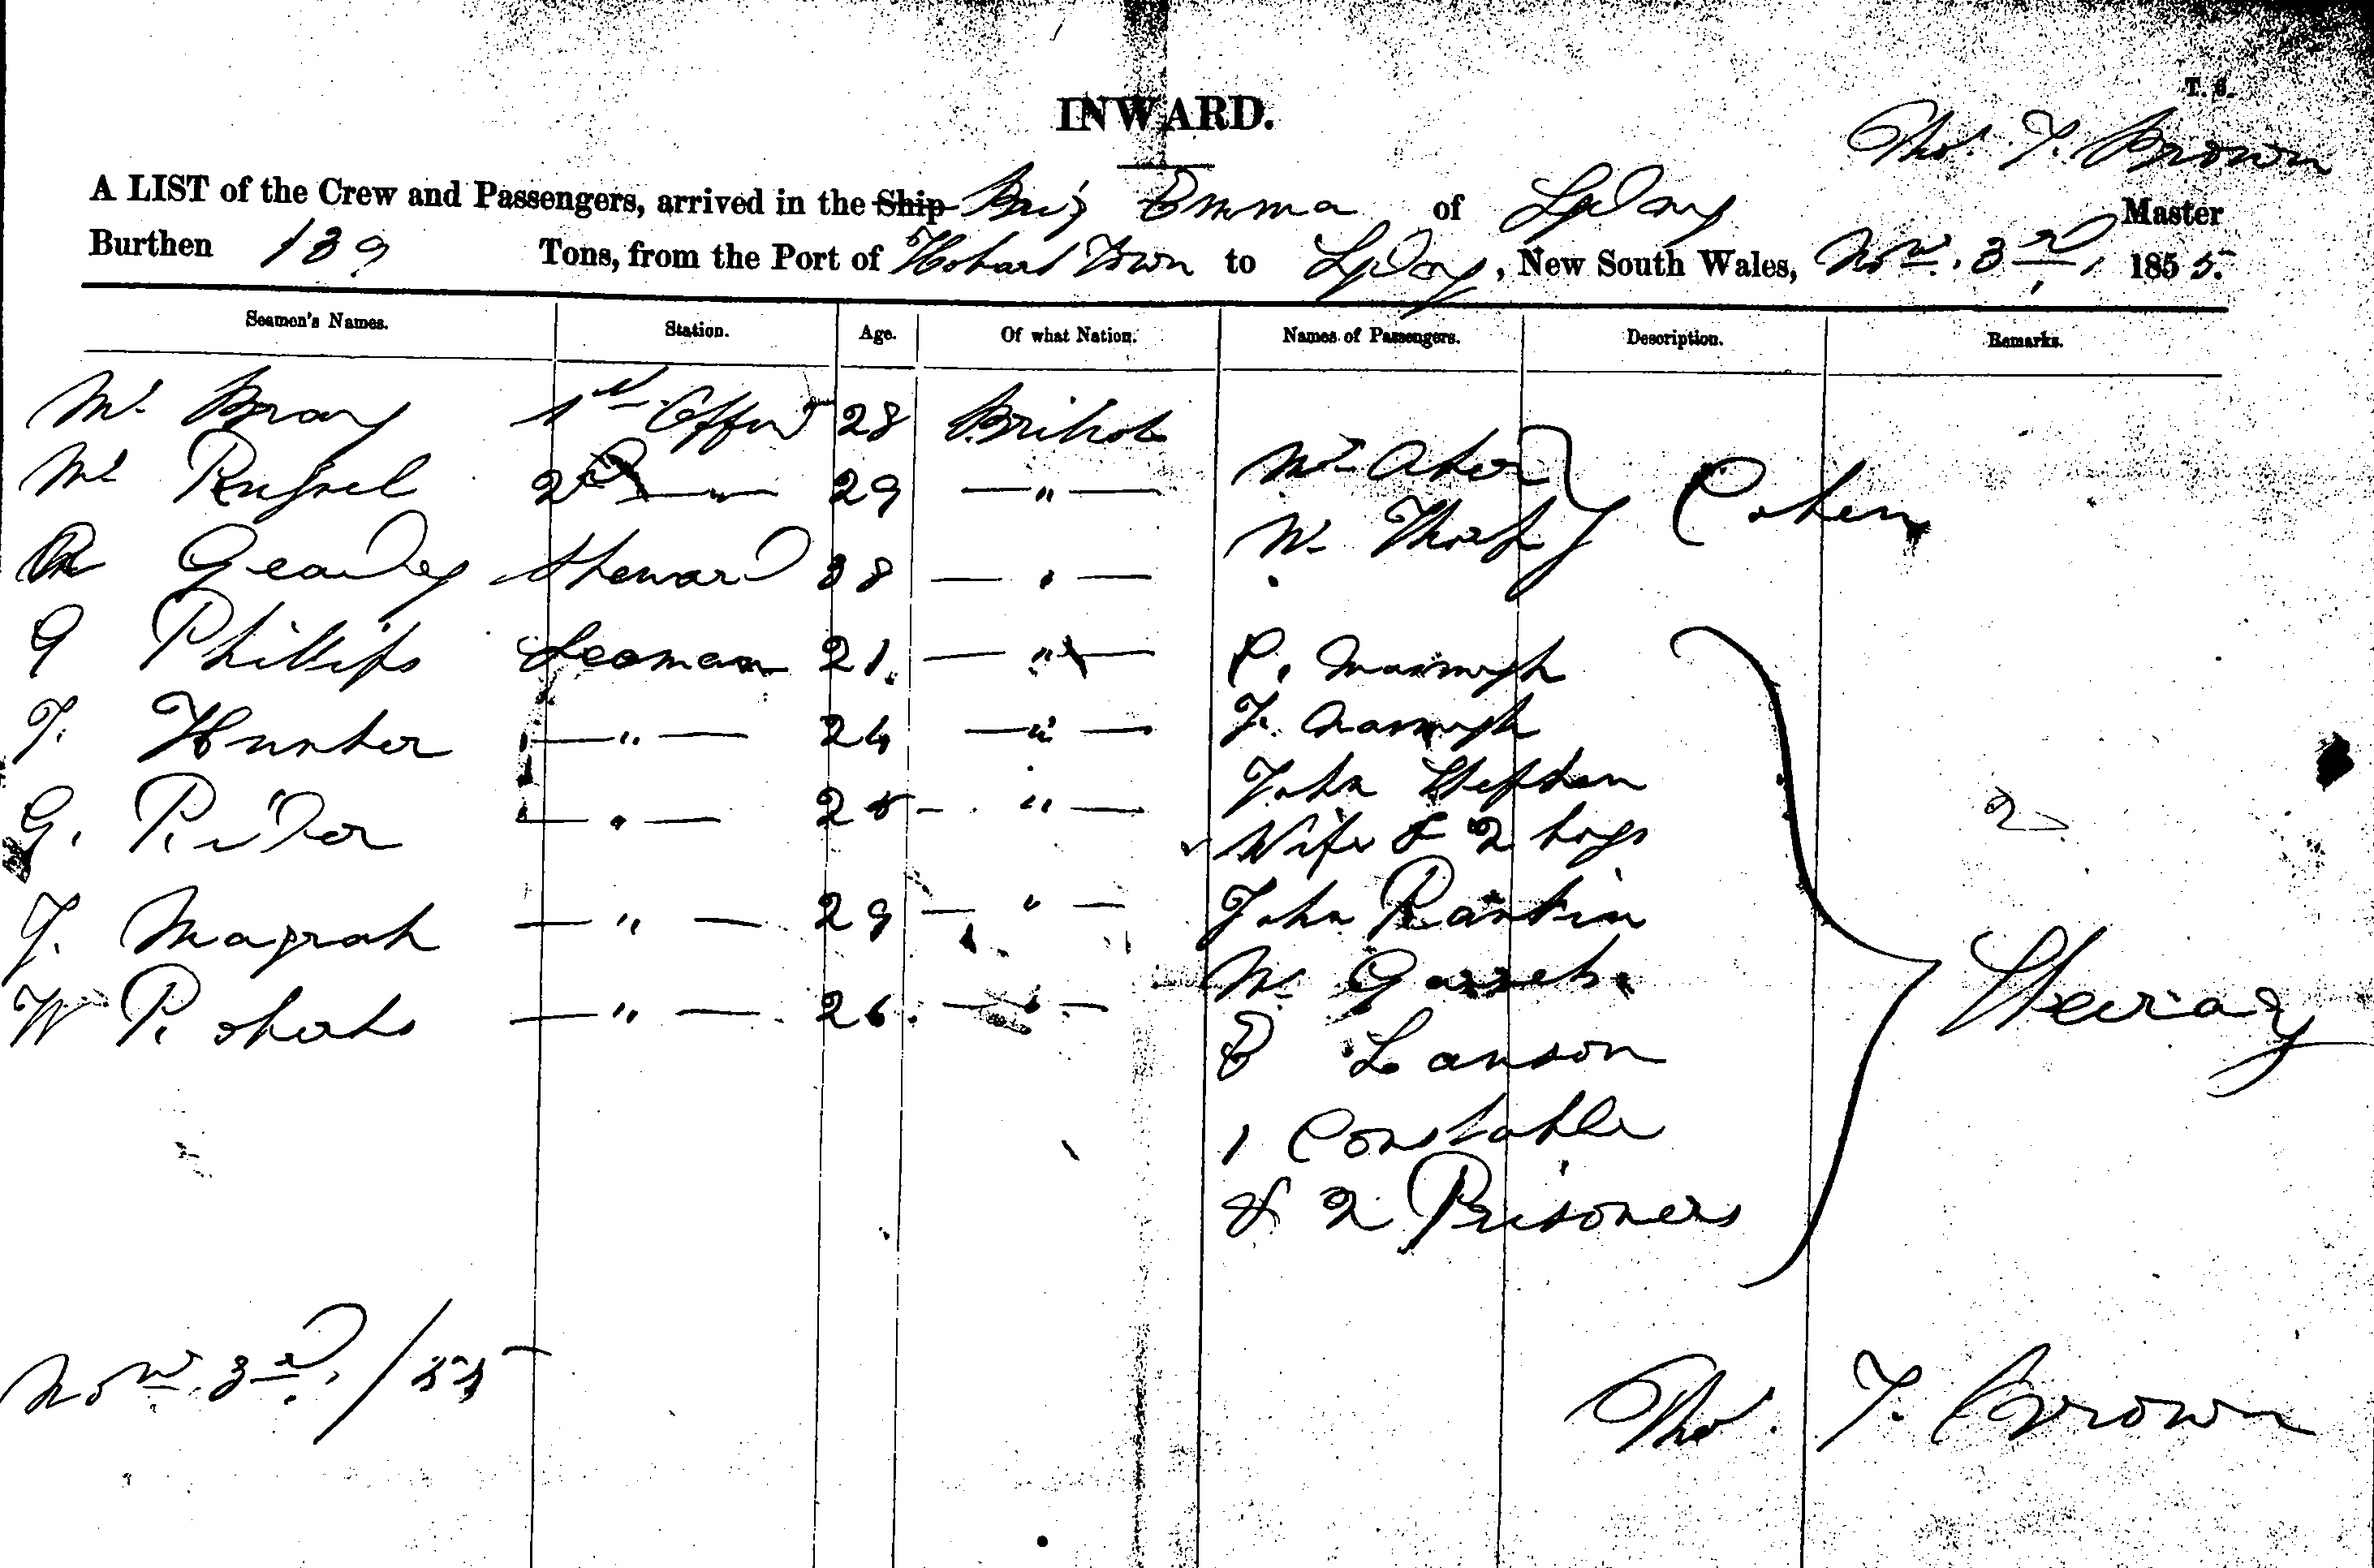 T. S.
INWARD.
Thos. T. Brown
A LIST of the Crew and Passengers, arrived in the Ship Brig Emma of Sydney Master
Burthen 139 Tons, from the Port of Hobart Town to Sydney, New South Wales, Novr. 3rd, 1855.
Seamen's Names. Station. Age. Of what Nation. Names of Passengers. Description. Remarks.
Mr Bray 1st Officer 28 British
Mr Russel 2nd — " — 29 — " — Mr Cohen
Geandey Steward 38 — " — W. Thorp
G Phillips Seaman 21. — " — C.
T. Hunter — " — 24 — " — J.
G. Rider — " — 25 — " — John Stephen
Wife & 2 boys 2
J. Magrah — " — 29 — " — John Rankin
W Roberts — " — 26. — " — Mr Garrett. Steerage
E Lanson
1 Constable
& 2 Prisoners
Novr. 3rd, /55
Thos. T. Brown